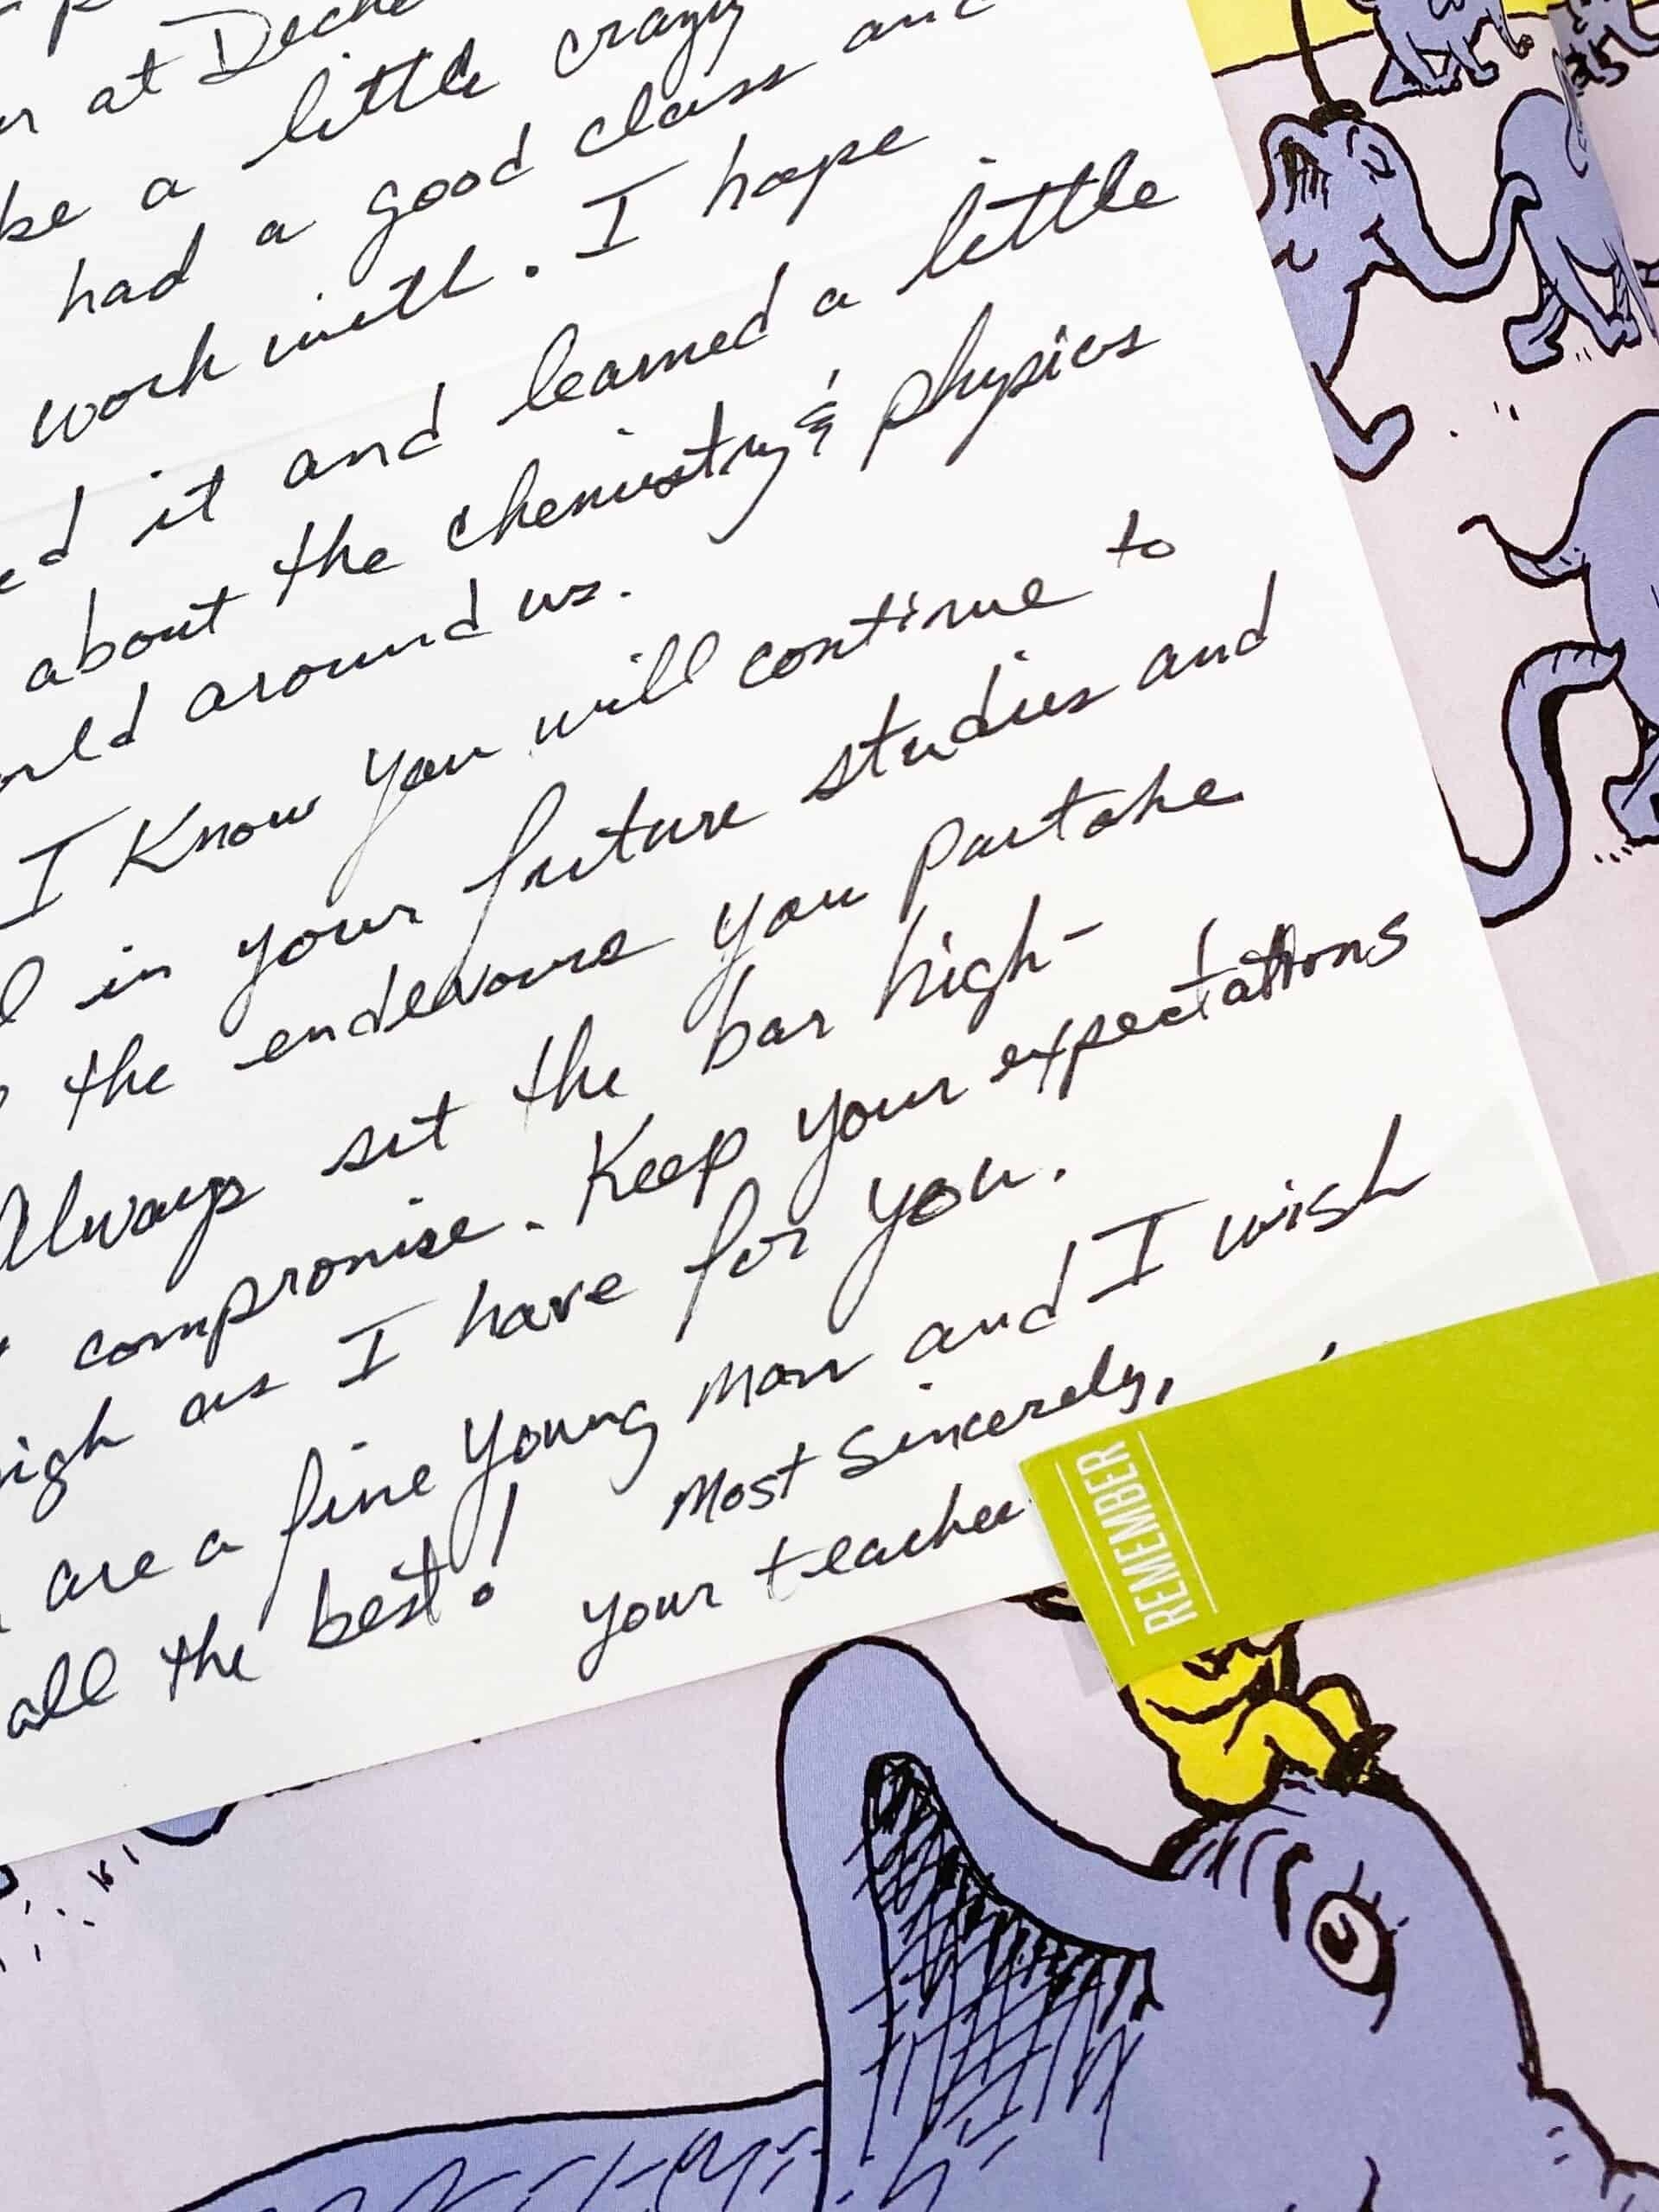 at Deche
be a little crazy
had a good class and
work with. I hope
ed it and learned a little
about the chemistry & physics
orld around us.
I Know you will continue to
in your future studies and
the endeavours you partake
Always set the bar high-
compromise. Keep your expectations
high as I have for you.
are a fine young man and I wish
all the best! Most Sincerely,
your teacher
REMEMBER